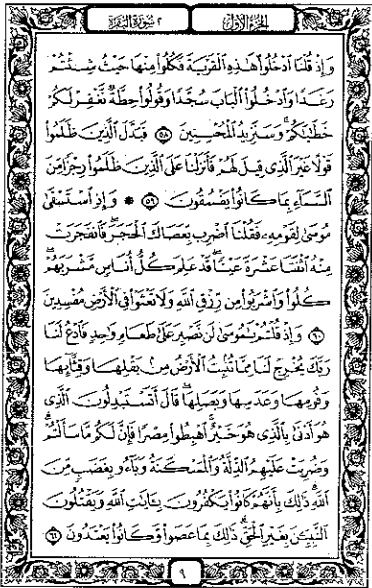 الجزء الأول
٢ سورة البقرة
وَإِذْ قُلْنَا ٱدْخُلُوا۟ هَٰذِهِ ٱلْقَرْيَةَ فَكُلُوا۟ مِنْهَا حَيْثُ شِئْتُمْ
رَغَدًا وَٱدْخُلُوا۟ ٱلْبَابَ سُجَّدًا وَقُولُوا۟ حِطَّةٌ نَّغْفِرْ لَكُمْ
خَطَٰيَٰكُمْ ۚ وَسَنَزِيدُ ٱلْمُحْسِنِينَ ٥٨ فَبَدَّلَ ٱلَّذِينَ ظَلَمُوا۟
قَوْلًا غَيْرَ ٱلَّذِى قِيلَ لَهُمْ فَأَنزَلْنَا عَلَى ٱلَّذِينَ ظَلَمُوا۟ رِجْزًا مِّنَ
ٱلسَّمَآءِ بِمَا كَانُوا۟ يَفْسُقُونَ ٥٩ ۞ وَإِذِ ٱسْتَسْقَىٰ
مُوسَىٰ لِقَوْمِهِۦ فَقُلْنَا ٱضْرِب بِّعَصَاكَ ٱلْحَجَرَ ۖ فَٱنفَجَرَتْ
مِنْهُ ٱثْنَتَا عَشْرَةَ عَيْنًا ۖ قَدْ عَلِمَ كُلُّ أُنَاسٍ مَّشْرَبَهُمْ ۖ
كُلُوا۟ وَٱشْرَبُوا۟ مِن رِّزْقِ ٱللَّهِ وَلَا تَعْثَوْا۟ فِى ٱلْأَرْضِ مُفْسِدِينَ
٦٠ وَإِذْ قُلْتُمْ يَٰمُوسَىٰ لَن نَّصْبِرَ عَلَىٰ طَعَامٍ وَٰحِدٍ فَٱدْعُ لَنَا
رَبَّكَ يُخْرِجْ لَنَا مِمَّا تُنۢبِتُ ٱلْأَرْضُ مِنۢ بَقْلِهَا وَقِثَّآئِهَا
وَفُومِهَا وَعَدَسِهَا وَبَصَلِهَا ۖ قَالَ أَتَسْتَبْدِلُونَ ٱلَّذِى
هُوَ أَدْنَىٰ بِٱلَّذِى هُوَ خَيْرٌ ۚ ٱهْبِطُوا۟ مِصْرًا فَإِنَّ لَكُم مَّا سَأَلْتُمْ ۗ
وَضُرِبَتْ عَلَيْهِمُ ٱلذِّلَّةُ وَٱلْمَسْكَنَةُ وَبَآءُو بِغَضَبٍ مِّنَ
ٱللَّهِ ۗ ذَٰلِكَ بِأَنَّهُمْ كَانُوا۟ يَكْفُرُونَ بِـَٔايَٰتِ ٱللَّهِ وَيَقْتُلُونَ
ٱلنَّبِيِّـۧنَ بِغَيْرِ ٱلْحَقِّ ۗ ذَٰلِكَ بِمَا عَصَوا۟ وَّكَانُوا۟ يَعْتَدُونَ ٦١
٩